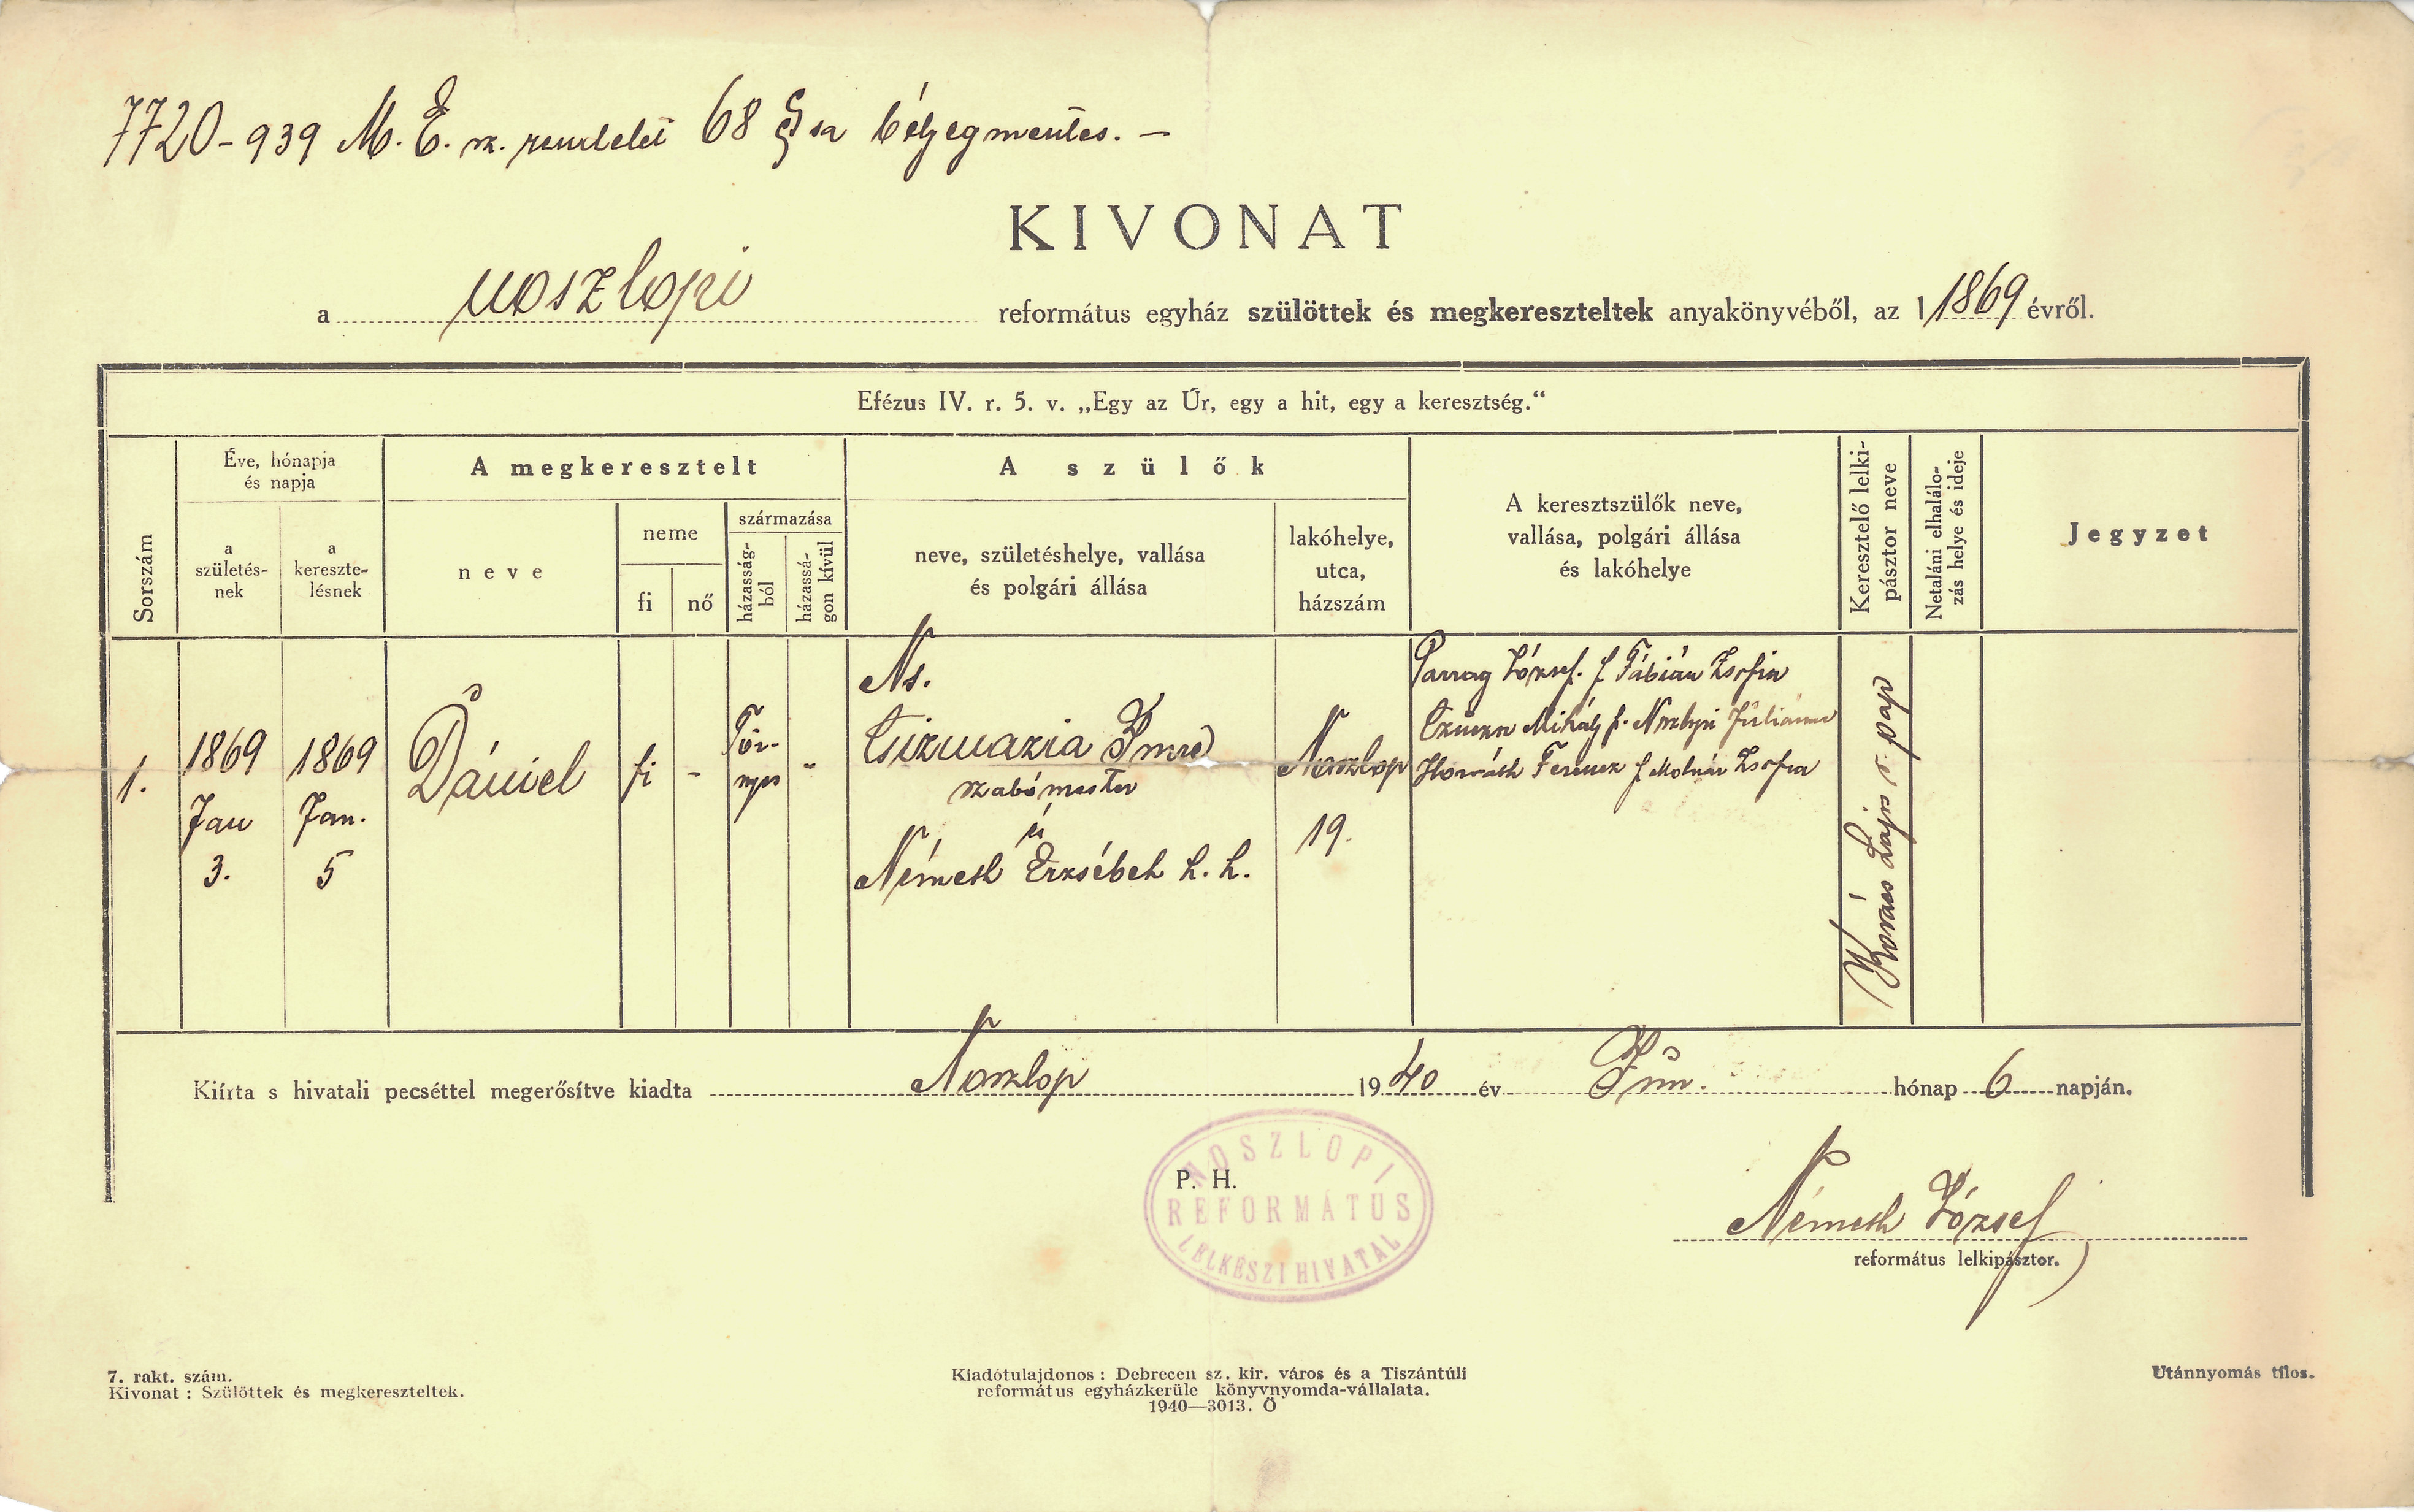 7720-939 M. E. sz. rendelet 68 §sa bélyegmentes. —
KIVONAT
a noszlopi református egyház szülöttek és megkereszteltek anyakönyvéből, az 1 1869 évről.
Efézus IV. r. 5. v. „Egy az Úr, egy a hit, egy a keresztség."
Sorszám
Éve, hónapja
és napja
a
születés-
nek
a
kereszte-
lésnek
A megkeresztelt
neve
neme
fi
nő
származása
házasság-
ból
házassá-
gon kívül
A szülők
neve, születéshelye, vallása
és polgári állása
lakóhelye,
utca,
házszám
A keresztszülők neve,
vallása, polgári állása
és lakóhelye
Keresztelő lelki-
pásztor neve
Netaláni elhalálo-
zás helye és ideje
Jegyzet
1.
1869
Jan
3.
1869
Jan.
5
Dániel
fi
-
Tör-
nyes
-
Ns.
Csizmazia Imre
szabómester
és
Németh Erzsébeth h. h.
Noszlop
19.
Parrag József. f Fábián Zsofia
Mihály f. Noszlopi Juliánna
Horváth Ferencz f Molnár Zsofia
Kovács Lajos r. pap
Kiírta s hivatali pecséttel megerősítve kiadta Noszlop 1940 év Jún. hónap 6 napján.
P. H.
NOSZLOPI
REFORMÁTUS
LELKÉSZI HIVATAL
Németh József
református lelkipásztor.
7. rakt. szám.
Kivonat : Szülöttek és megkereszteltek.
Kiadótulajdonos : Debrecen sz. kir. város és a Tiszántúli
református egyházkerüle könyvnyomda-vállalata.
1940—3013. Ö
Utánnyomás tilos.